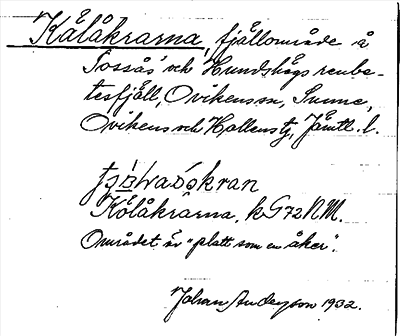 Kålåkrarna, fjällområde å
Sossås och Hundshögs renbe-
tesfjäll, Ovikens sn, Sunne,
Ovikens och Hallens tg, Jämtl. l.
Kölåkrarna, k G 72 N M.
Området är "platt som en åker".
Johan Anderson 1932.